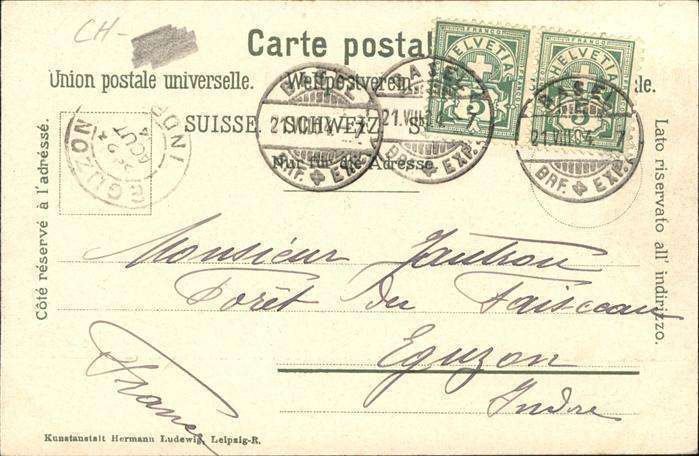 CH-
Carte postale
Union postale universelle. Weltpostverein
SUISSE. SCHWEIZ. S
Nur für die Adresse.
FRANCO
HELVETIA
5
FRANCO
HELVETIA
5
BASEL
21.VIII.04 7
BRF. EXP.
BASEL
21.VIII.04 7
BRF. EXP.
BASEL
21.VIII.04 7
BRF. EXP.
EGUZON
INDRE
AOUT
Côté réservé à l'adréssé.
Lato riservato all' indirizzo.
Monsieur Jautrou
Forêt du Faisceau
Eguzon
Indre
France
Kunstanstalt Hermann Ludewig, Leipzig-R.